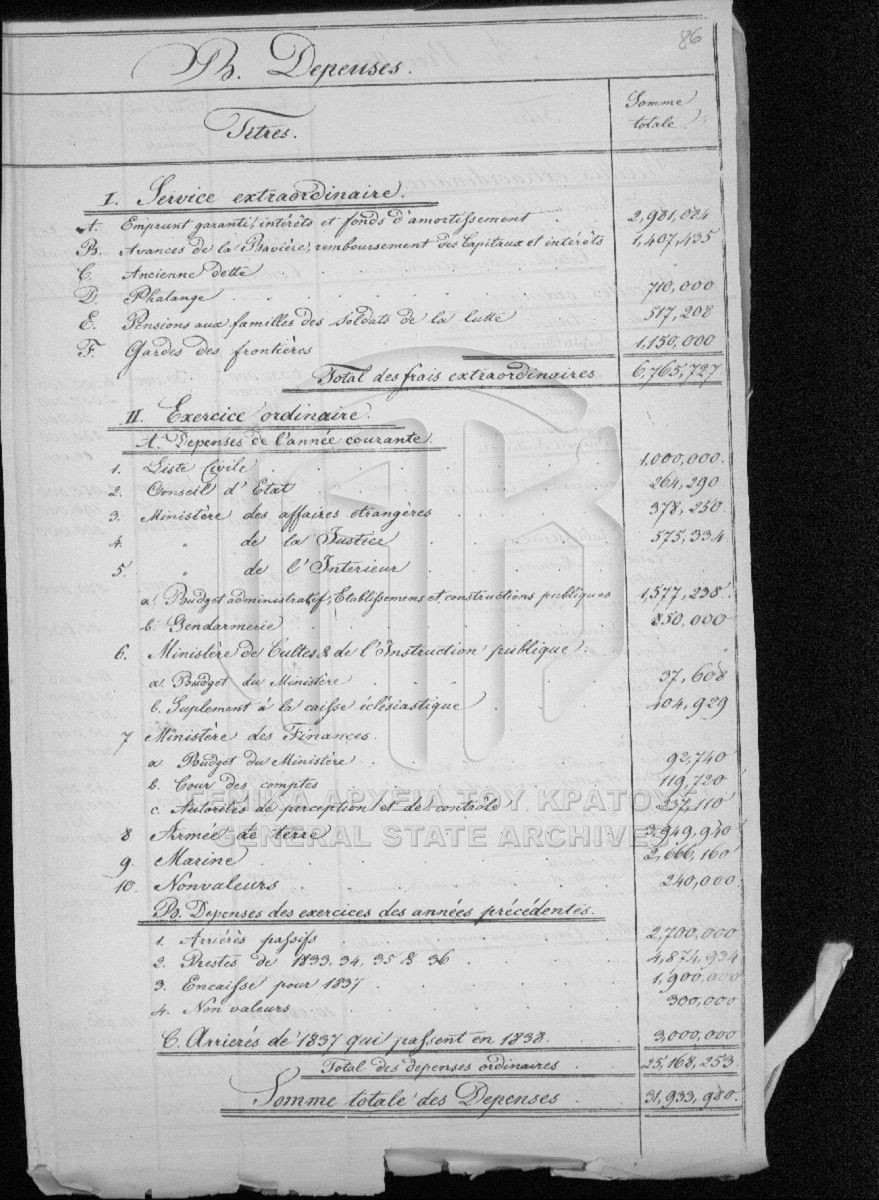 86
B. Depenses.
Titres. Somme totale
I. Service extraordinaire.
A. Emprunt garanti, intérêts et fonds d'amortissement 2,981,084
B. Avances de la Bavière, remboursement des Capitaux et intérêts 1,407,435
C. Ancienne dette
D. Phalange 710,000
E. Pensions aux familles des soldats de la lutte 517,208
F. Gardes des frontières 1,150,000
Total des frais extraordinaires 6,765,727
II. Exercice ordinaire.
A Depenses de l'année courante.
1. Liste Civile 1,000,000.
2. Conseil d'Etat 264,290
3. Ministère des affaires etrangères 378,250
4. " de la Justice 575,334
5. " de l'Interieur
a. Budget administratif, Etablissemens et constructions publiques 1,577,238
b. Gendarmerie 850,000
6. Ministère de Cultes & de l'Instruction publique.
a. Budget du Ministère 37,608
b. Suplement à la caisse éclésiastique 404,929
7 Ministère des Finances.
a. Budget du Ministère 92,740
b. Cour des comptes 119,720
c. Autorités de perception et de contrôle 237,110
8 Armée de terre 3,949,940
9. Marine 2,666,160
10. Nonvaleurs 240,000.
B. Depenses des exercices des années précédentes.
1. Arriérés passifs 2,700,000
2. Restes de 1833, 34, 35 & 36 4,874,934
3. Encaisse pour 1837 1,900,000
4. Non valeurs 300,000
C. Arrierés de 1837 qui passent en 1838. 3,000,000
Total des depenses ordinaires 25,168,253.
Somme totale des Depenses 31,933,980.
ΓΕΝΙΚΑ ΑΡΧΕΙΑ ΤΟΥ ΚΡΑΤΟΥΣ
GENERAL STATE ARCHIVES